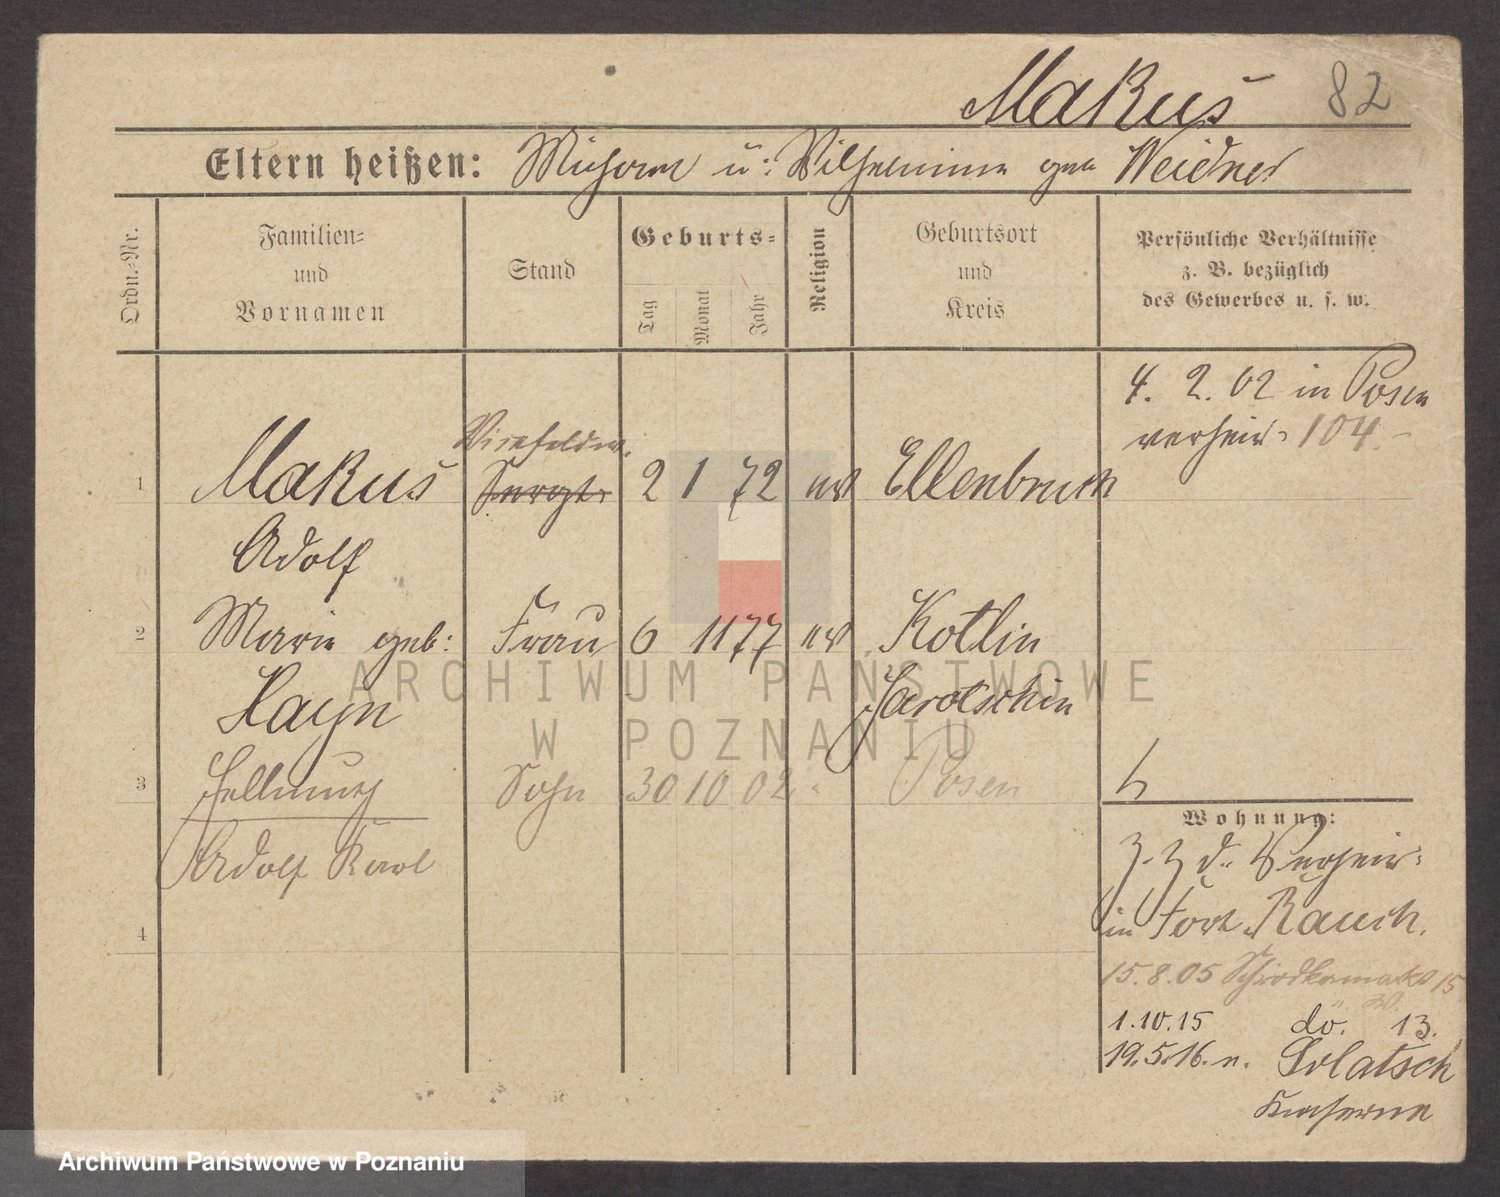 Makus 82
Eltern heißen: Michael u: Wilhelmine geb Weidner
Ordn.-Nr.
Familien-
und
Vornamen
Stand
Geburts-
Tag
Monat
Jahr
Religion
Geburtsort
und
Kreis
Persönliche Verhältnisse
z. B. bezüglich
des Gewerbes u. s. w.
4. 2. 02 in Posen
verheir. 104.
Vizefeldw.
1 Makus Sergt. 2 1 72 ev Ellenbruch
Adolf
2 Marie geb: Frau 6 11 77 ev Kotlin
Hayn Jarotschin
3 Hellmuth Sohn 30 10 02 Posen
Adolf Karl
4
Wohnung:
z. Z. d. Verheir:
in Fort Rauch.
15.8.05 15
1.10.15 do. 13.
19.5.16. n. Solatsch
Kaserne
ARCHIWUM PAŃSTWOWE
W POZNANIU
Archiwum Państwowe w Poznaniu